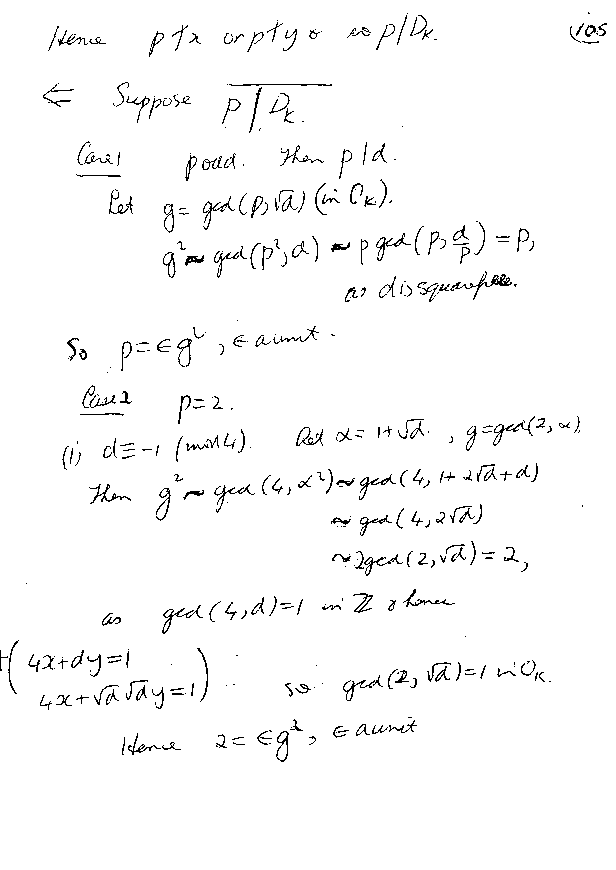 Hence p∤x or p∤y & so p|D_K. 105
⇐ Suppose p | D_K.
Case 1 p odd. Then p|d.
Let g = gcd(p, √d) (in O_K).
g² ~ gcd(p², d) ~ p gcd(p, d/p) = p,
as d is squarefree.
So p = ∈g², ∈ a unit.
Case 2 p=2.
(i) d ≡ -1 (mod 4). Let α = 1+√d, g = gcd(2, α)
Then g² ~ gcd(4, α²) ~ gcd(4, 1+2√d+d)
~ gcd(4, 2√d)
~ 2gcd(2, √d) = 2,
as gcd(4, d)=1 in ℤ & hence
( 4x+dy=1
4x+√d√dy=1 ) so gcd(2, √d)=1 in O_K.
Hence 2 = ∈g², ∈ a unit